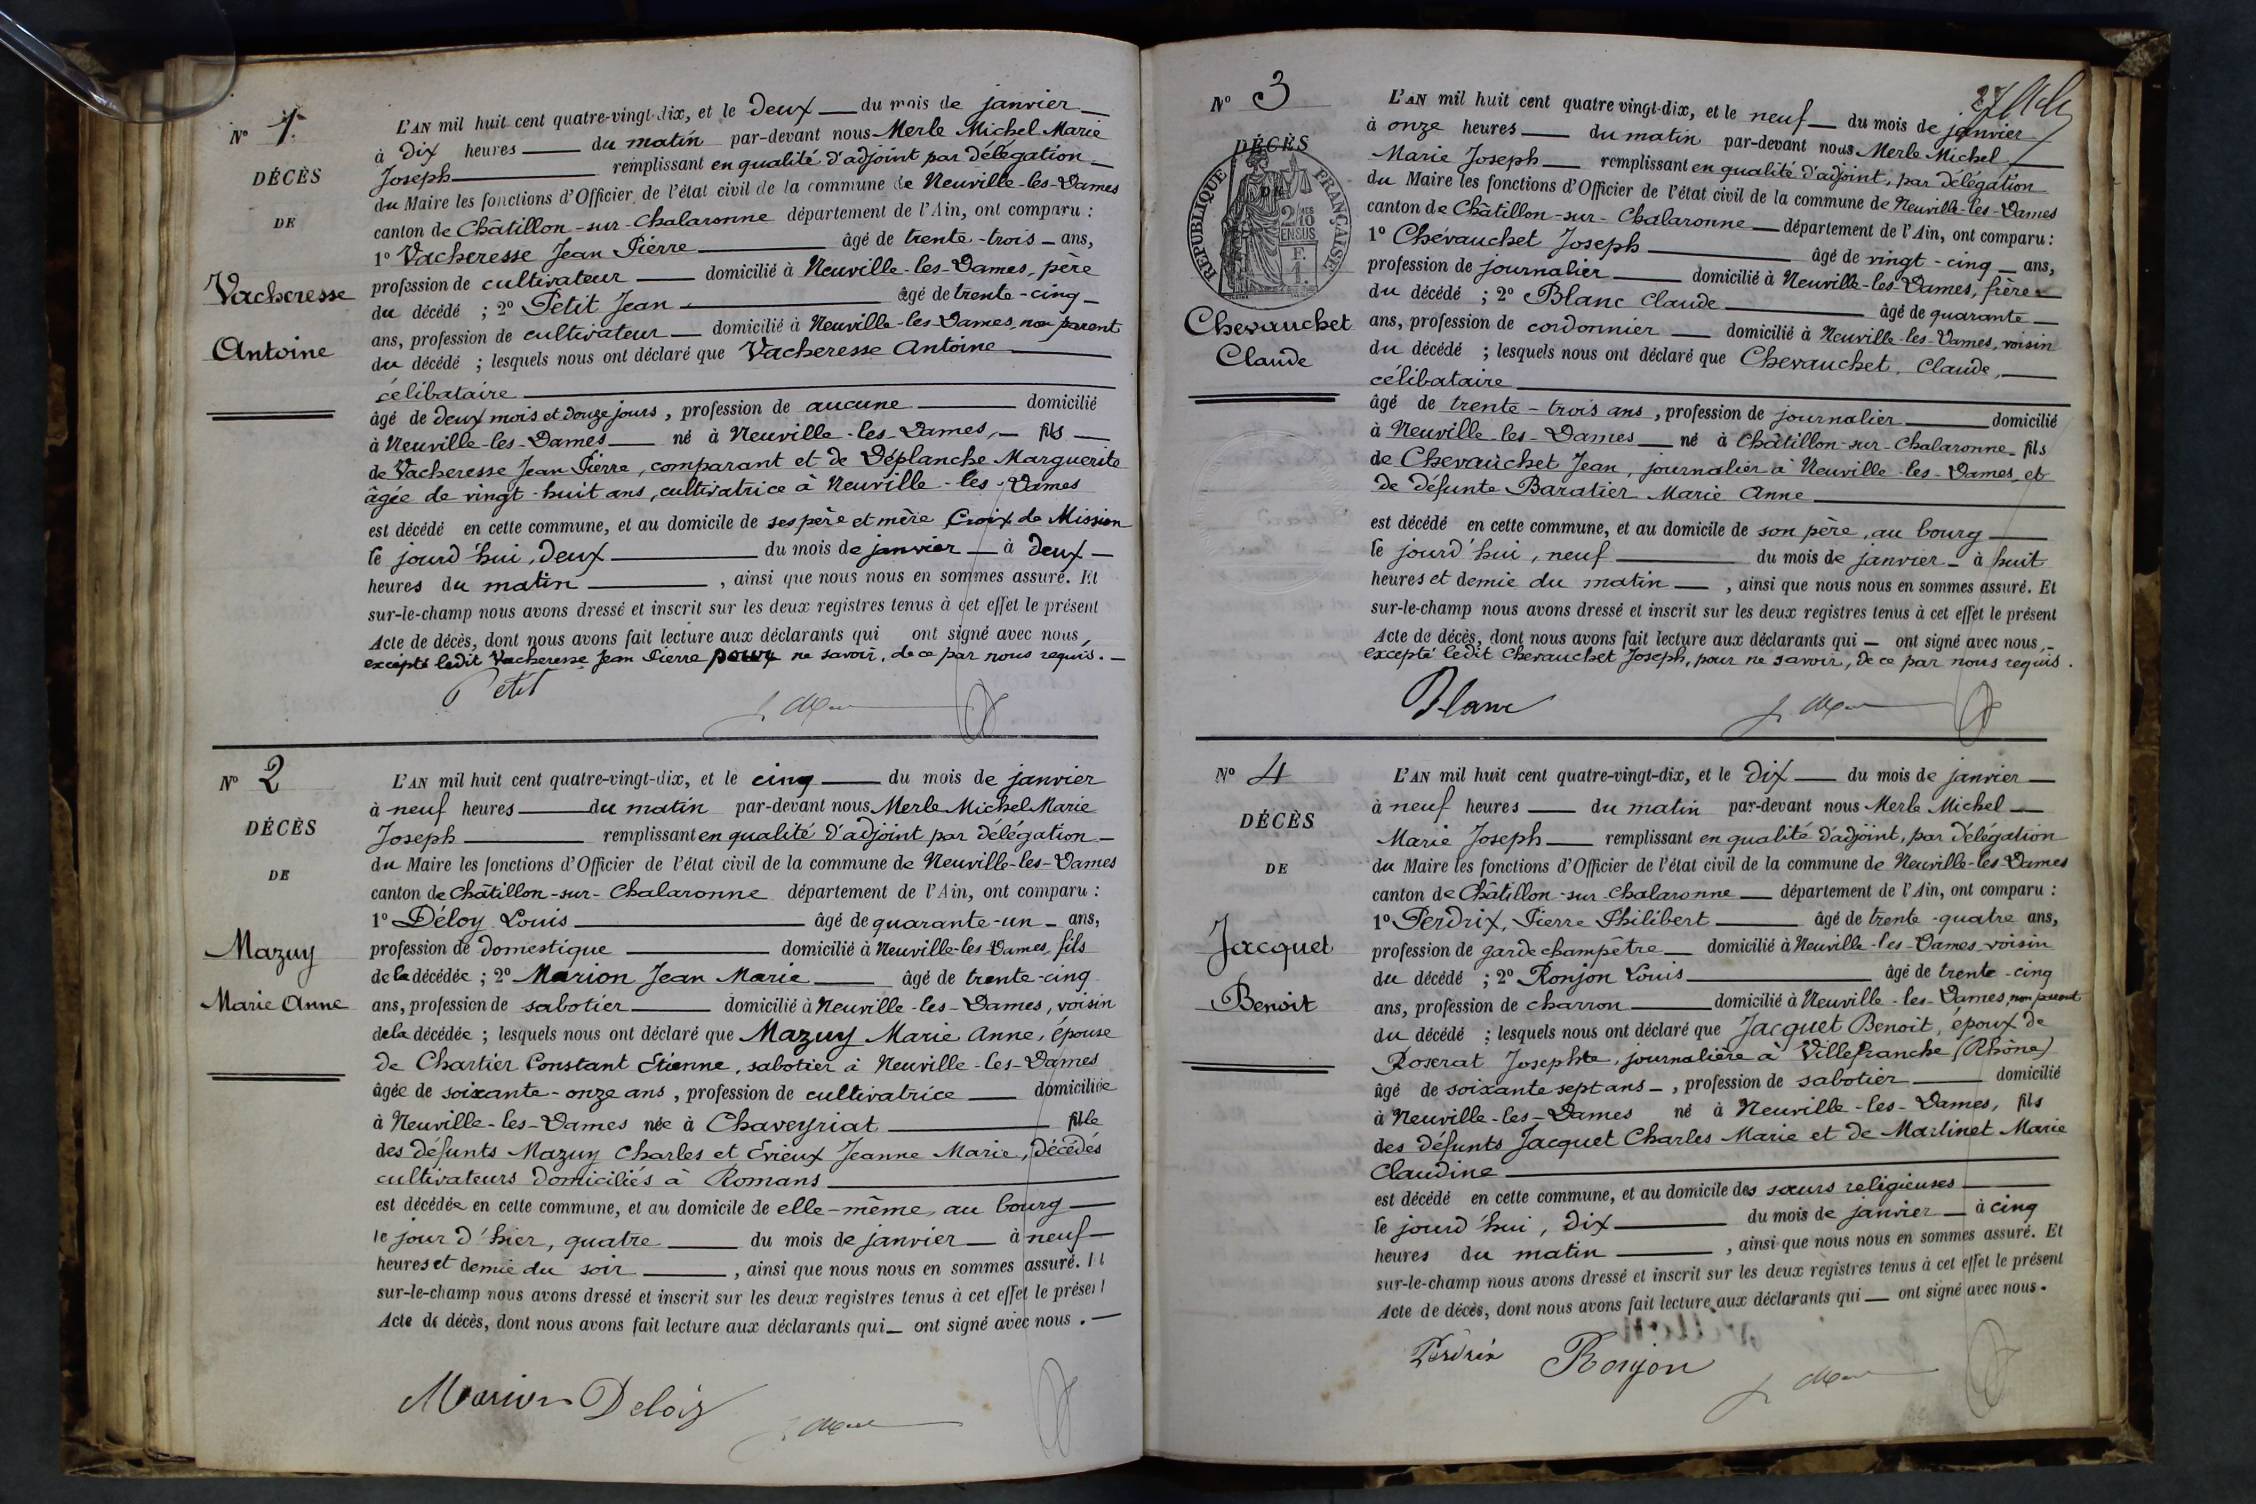 N° 1
DÉCÈS
DE
Vacheresse
Antoine
L'AN mil huit cent quatre-vingt-dix, et le deux du mois de janvier
à dix heures du matin par-devant nous Merle Michel Marie
Joseph remplissant en qualité d'adjoint par délégation
du Maire les fonctions d'Officier de l'état civil de la commune de Neuville-les-Dames
canton de Châtillon-sur-Chalaronne département de l'Ain, ont comparu :
1° Vacheresse Jean Pierre âgé de trente-trois ans,
profession de cultivateur domicilié à Neuville-les-Dames, père
du décédé ; 2° Petit Jean âgé de trente-cinq
ans, profession de cultivateur domicilié à Neuville-les-Dames, non parent
du décédé ; lesquels nous ont déclaré que Vacheresse Antoine
célibataire
âgé de deux mois et douze jours, profession de aucune domicilié
à Neuville-les-Dames né à Neuville-les-Dames, fils
de Vacheresse Jean Pierre, comparant et de Déplanche Marguerite
âgée de vingt-huit ans, cultivatrice à Neuville-les-Dames
est décédé en cette commune, et au domicile de ses père et mère Croix de Mission
le jourd'hui, deux du mois de janvier à deux
heures du matin, ainsi que nous nous en sommes assuré. Et
sur-le-champ nous avons dressé et inscrit sur les deux registres tenus à cet effet le présent
Acte de décès, dont nous avons fait lecture aux déclarants qui ont signé avec nous,
excepté ledit Vacheresse Jean Pierre pour ne savoir, de ce par nous requis.
Petit
N° 2
DÉCÈS
DE
Mazuy
Marie Anne
L'AN mil huit cent quatre-vingt-dix, et le cinq du mois de janvier
à neuf heures du matin par-devant nous Merle Michel Marie
Joseph remplissant en qualité d'adjoint par délégation
du Maire les fonctions d'Officier de l'état civil de la commune de Neuville-les-Dames
canton de Châtillon-sur-Chalaronne département de l'Ain, ont comparu :
1° Déloy Louis âgé de quarante-un ans,
profession de domestique domicilié à Neuville-les-Dames, fils
de la décédée ; 2° Marion Jean Marie âgé de trente-cinq
ans, profession de sabotier domicilié à Neuville-les-Dames, voisin
de la décédée ; lesquels nous ont déclaré que Mazuy Marie Anne, épouse
de Chartier Constant Etienne, sabotier à Neuville-les-Dames
âgée de soixante-onze ans, profession de cultivatrice domiciliée
à Neuville-les-Dames née à Chaveyriat fille
des défunts Mazuy Charles et Evieux Jeanne Marie, décédés
cultivateurs domiciliés à Romans
est décédée en cette commune, et au domicile de elle-même, au bourg
le jour d'hier, quatre du mois de janvier à neuf
heures et demie du soir, ainsi que nous nous en sommes assuré. Et
sur-le-champ nous avons dressé et inscrit sur les deux registres tenus à cet effet le présent
Acte de décès, dont nous avons fait lecture aux déclarants qui ont signé avec nous.
Marion Deloiz
N° 3
DÉCÈS
RÉPUBLIQUE FRANÇAISE
Chevauchet
Claude
L'AN mil huit cent quatre vingt-dix, et le neuf du mois de janvier
à onze heures du matin par-devant nous Merle Michel
Marie Joseph remplissant en qualité d'adjoint, par délégation
du Maire les fonctions d'Officier de l'état civil de la commune de Neuville-les-Dames
canton de Châtillon-sur-Chalaronne département de l'Ain, ont comparu :
1° Chevauchet Joseph âgé de vingt-cinq ans,
profession de journalier domicilié à Neuville-les-Dames, frère
du décédé ; 2° Blanc Claude âgé de quarante
ans, profession de cordonnier domicilié à Neuville-les-Dames, voisin
du décédé ; lesquels nous ont déclaré que Chevauchet Claude,
célibataire
âgé de trente-trois ans, profession de journalier domicilié
à Neuville-les-Dames né à Châtillon-sur-Chalaronne fils
de Chevauchet Jean, journalier à Neuville-les-Dames, et
de défunte Baratier Marie Anne
est décédé en cette commune, et au domicile de son père, au bourg
le jourd'hui, neuf du mois de janvier à huit
heures et demie du matin, ainsi que nous nous en sommes assuré. Et
sur-le-champ nous avons dressé et inscrit sur les deux registres tenus à cet effet le présent
Acte de décès, dont nous avons fait lecture aux déclarants qui ont signé avec nous,
excepté ledit Chevauchet Joseph, pour ne savoir, de ce par nous requis.
Blanc
N° 4
DÉCÈS
DE
Jacquet
Benoit
L'AN mil huit cent quatre-vingt-dix, et le dix du mois de janvier
à neuf heures du matin par-devant nous Merle Michel
Marie Joseph remplissant en qualité d'adjoint, par délégation
du Maire les fonctions d'Officier de l'état civil de la commune de Neuville-les-Dames
canton de Châtillon-sur-Chalaronne département de l'Ain, ont comparu :
1° Perdrix, Pierre Philibert âgé de trente-quatre ans,
profession de garde champêtre domicilié à Neuville-les-Dames, voisin
du décédé ; 2° Ronjon Louis âgé de trente-cinq
ans, profession de charron domicilié à Neuville-les-Dames, non parent
du décédé ; lesquels nous ont déclaré que Jacquet Benoit, époux de
Roserat Josephte, journalière à Villefranche (Rhône)
âgé de soixante sept ans, profession de sabotier domicilié
à Neuville-les-Dames né à Neuville-les-Dames, fils
des défunts Jacquet Charles Marie et de Martinet Marie
Claudine
est décédé en cette commune, et au domicile des sœurs religieuses
le jourd'hui, dix du mois de janvier à cinq
heures du matin, ainsi que nous nous en sommes assuré. Et
sur-le-champ nous avons dressé et inscrit sur les deux registres tenus à cet effet le présent
Acte de décès, dont nous avons fait lecture aux déclarants qui ont signé avec nous.
Perdrix Ronjon